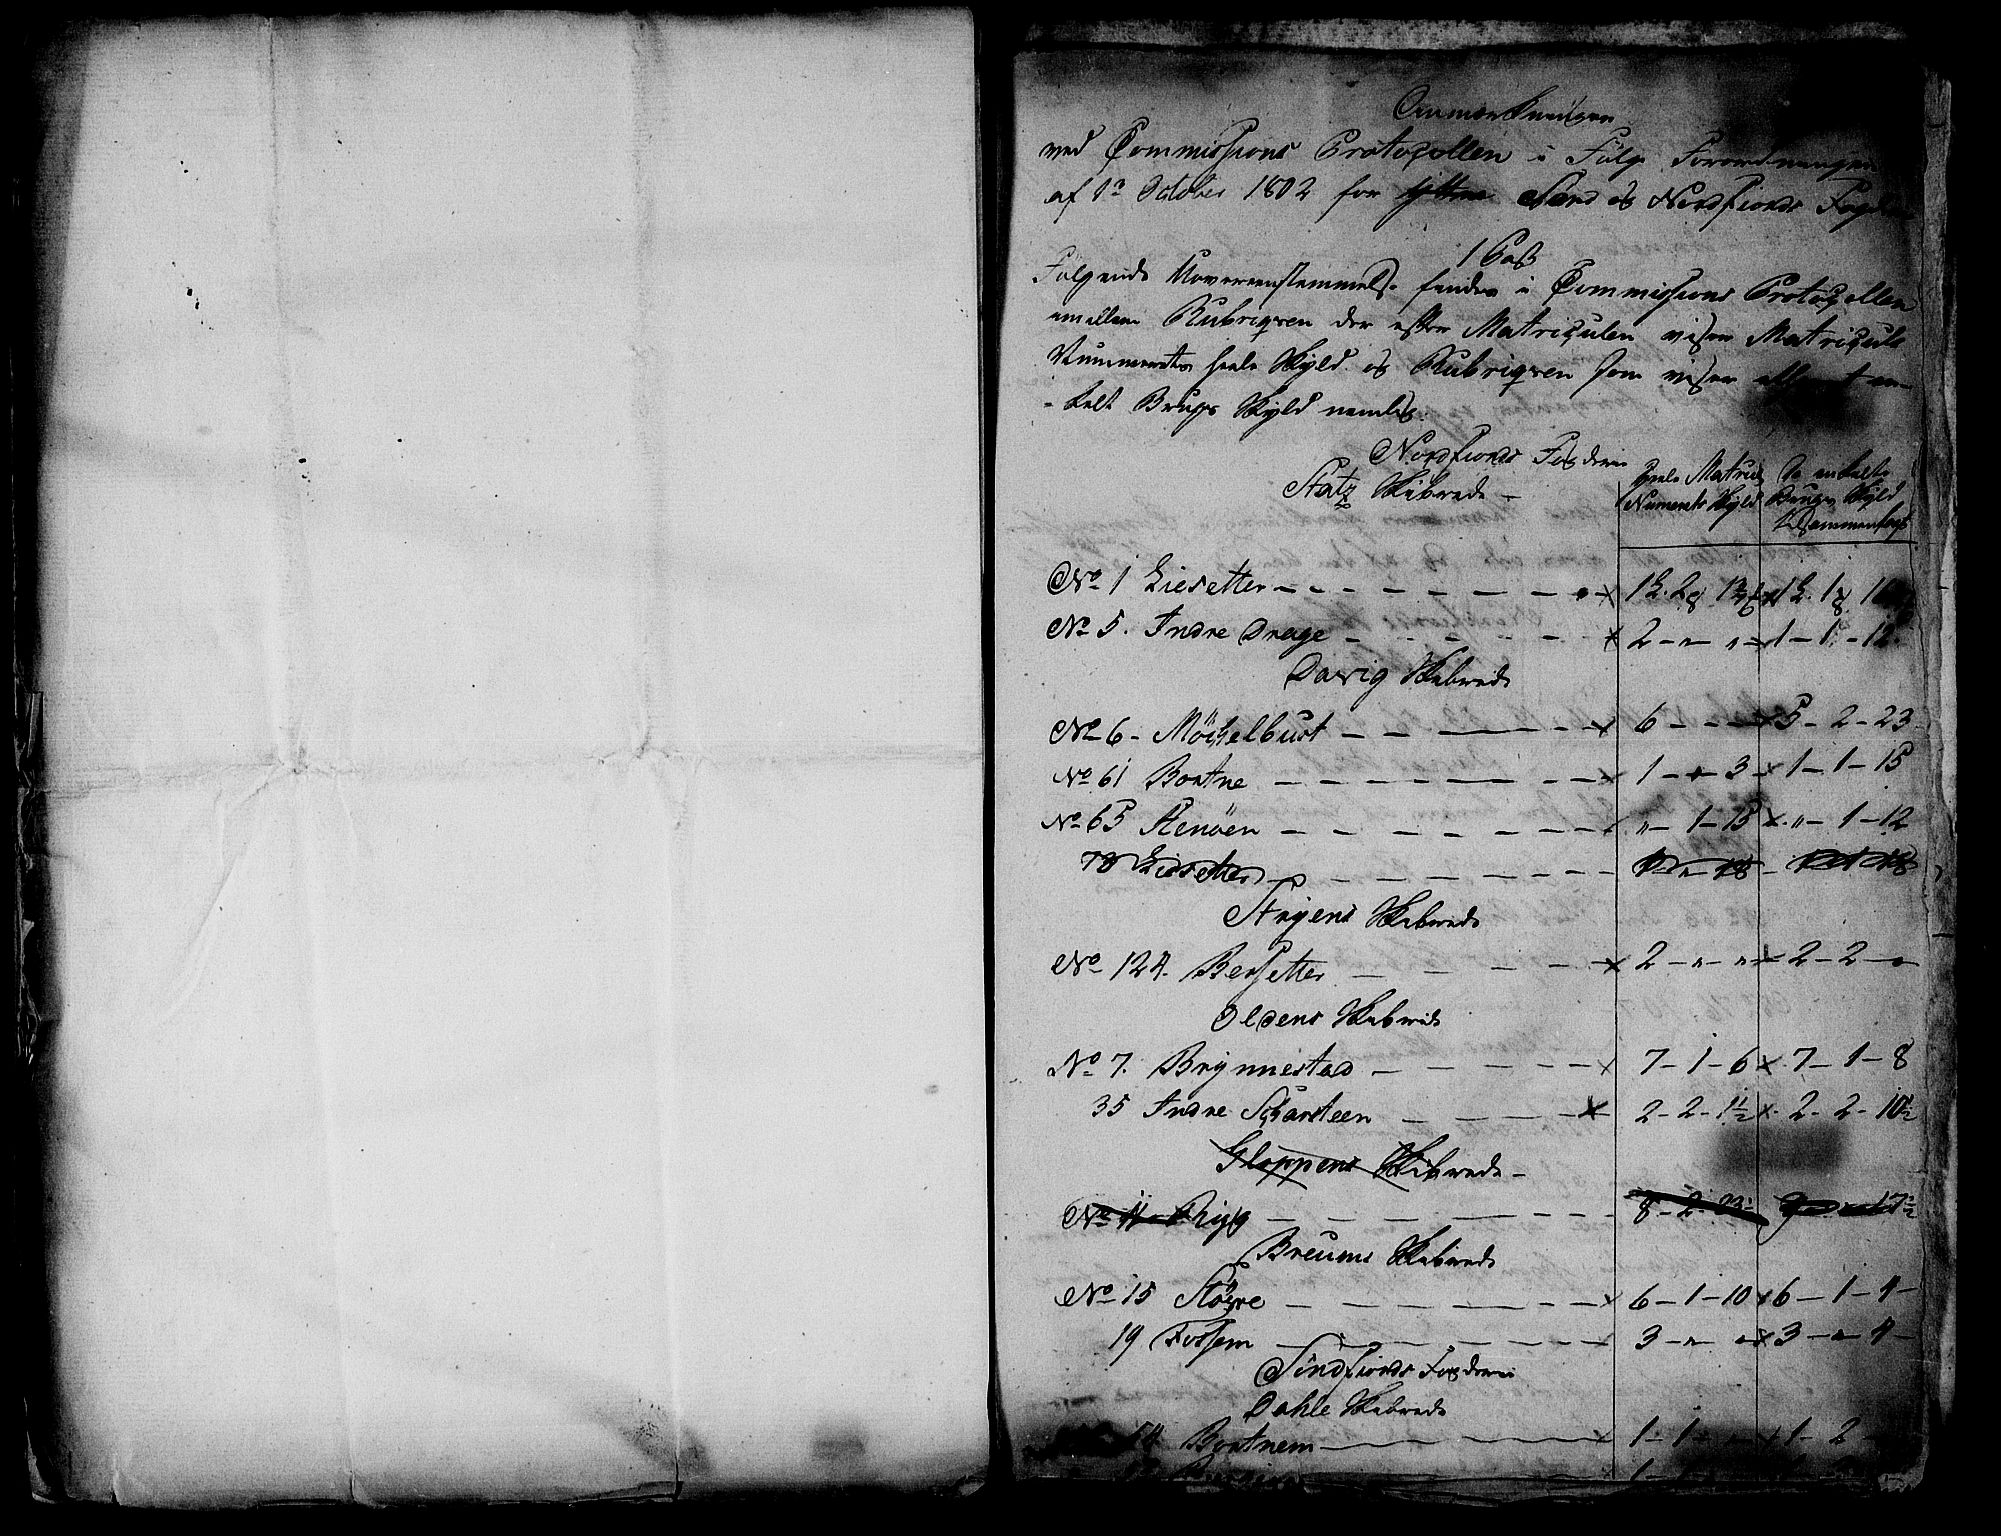 Anmærkninger
ved Commissions Protocollen i Følge Forordningen
af 1te October 1802 for Sønd og Nordfiords Fogderie
1 Post
Følgende Uovereenstemmelse findes i Commissions Protocollen
imellem Rubriqven der efter Matriculen viser Matricul
Nummerets heele Skyld og Rubriqven som viser ethvert en-
-kelt Brugs Skyld nemlig.
Nordfiords Fogderie
Statz Skibrede -
Heele Matricul Numerets Skyld
De enkelte Brugs Skyld tilsammenlagt
No 1 Liesetter - - - 1 L. 2 1 L. 1
No 5. Indre Drage - - - 2 - „ „ - 1 - 1 - 12.
Davig Skibrede
No 6 - Möchelbust - - - 6 - - - 5 - 2 - 23
No 61 Bortne - - - 1 - „ - 3 - 1 - 1 - 15
No 65 Stenöen - - - „ - 1 - 15 „ - 1 - 12
78 Liesetter - - -
Stryens Skibrede
No 124. Bersetter - - - 2 - „ „ - 2 - 2 - „
Oldens Skibrede
No 7. Brynnestad - - - 7 - 1 - 6 7 - 1 - 8
35 Indre Scharsteen - - - 2 - 2 - 1½ 2 - 2 - 10½
Gloppens Skibrede -
No 11 Ryg - - - 8 - 2
Breums Skibrede
No 15 Støyre - - - 6 - 1 - 10 6 - 1 - 4 -
19 Fossem - - - 3 - „ „ 3 - „ 4 -
Söndfiords Fogderie
Dahle Skibrede
54 Bortnem - - - 1 - 1 - 1 - 2 -